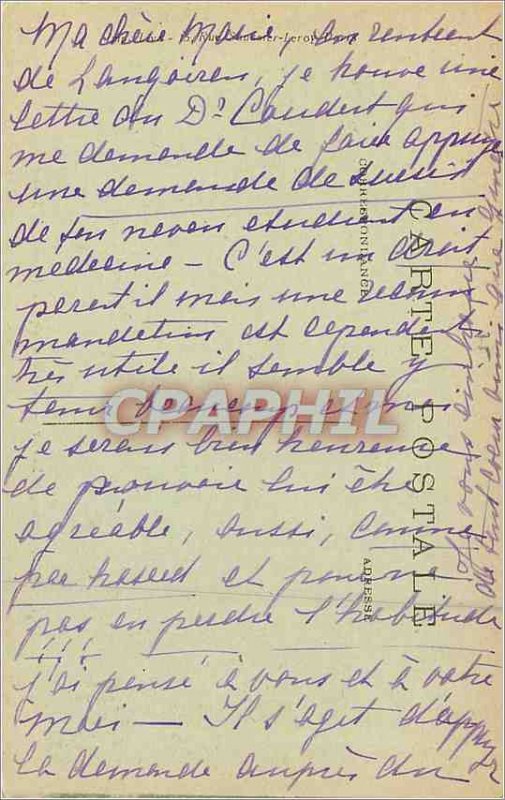 Ma chère Marie, En rentrant
de Langoiran, je trouve une
lettre du Dr Caudert qui
me demande de faire appuyer
une demande de sursis
de son neveu étudiant en
médecine — C'est un droit
parait il mais une recom
mandation est cependant
très utile il semble y
tenir beaucoup et moi
je serais bien heureuse
de pouvoir lui être
agréable, aussi, comme
par hasard et pour ne
pas en perdre l'habitude
!!!
j'ai pensé à vous et à votre
mari — Il s'agit d'appuyer
la demande auprès du
CARTE POSTALE
CORRESPONDANCE
ADRESSE
CPAPHIL